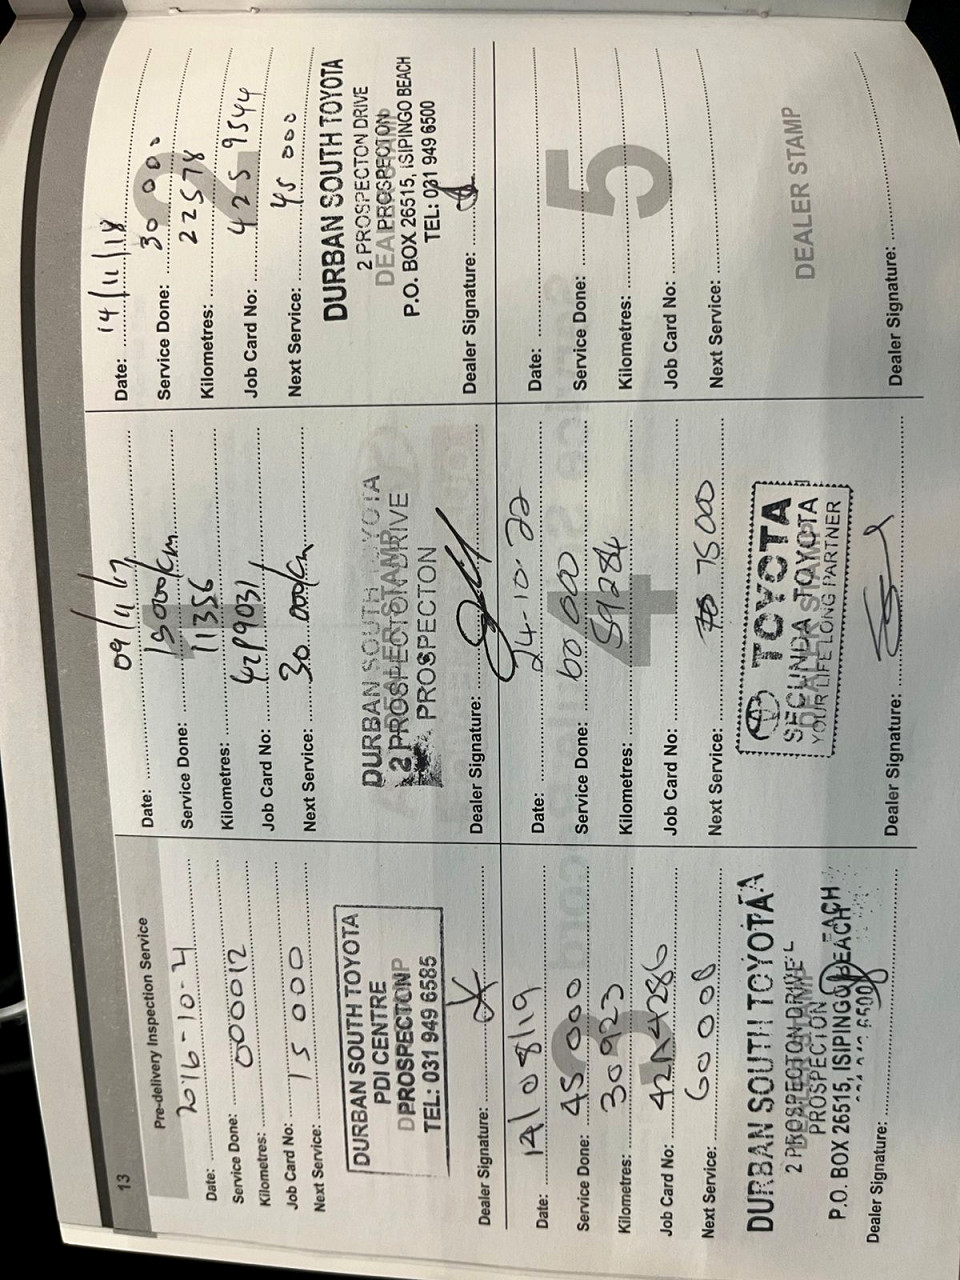 13
Pre-delivery Inspection Service
Date: 2016-10-21
Service Done:
Kilometres: 0000012
Job Card No:
Next Service: 15 000
DURBAN SOUTH TOYOTA
PDI CENTRE
PROSPECTON
TEL: 031 949 6585
Dealer Signature:
1
Date: 09/11/17
Service Done: 15000km
Kilometres: 11356
Job Card No: 42P9031
Next Service: 30 000km
DURBAN SOUTH TOYOTA
2 PROSPECTON DRIVE
PROSPECTON
Dealer Signature:
2
Date: 14/11/18
Service Done: 30 000
Kilometres: 22578
Job Card No: 4259544
Next Service: 45 000
DURBAN SOUTH TOYOTA
2 PROSPECTON DRIVE
PROSPECTON
P.O. BOX 26515, ISIPINGO BEACH
TEL: 031 949 6500
Dealer Signature:
3
Date: 14/08/19
Service Done: 45 000
Kilometres: 30923
Job Card No: 42R4286
Next Service: 60 000
DURBAN SOUTH TOYOTA
2 PROSPECTON DRIVE
PROSPECTON
P.O. BOX 26515, ISIPINGO BEACH
Dealer Signature:
4
Date: 24-10-22
Service Done: 60 000
Kilometres: 59284
Job Card No:
Next Service: 75 000
TOYOTA
SECUNDA TOYOTA
YOUR LIFELONG PARTNER
Dealer Signature:
5
Date:
Service Done:
Kilometres:
Job Card No:
Next Service:
DEALER STAMP
Dealer Signature: